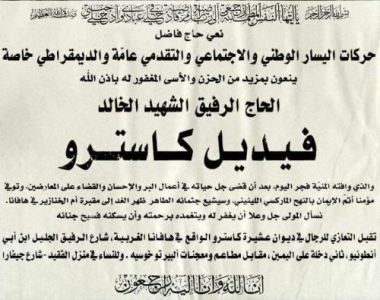 بسم الله الرحمن الرحيم
يا أيتها النفس المطمئنة ارجعي إلى ربك راضية مرضية فادخلي في عبادي وادخلي جنتي
صدق الله العظيم
نعي حاج فاضل
حركات اليسار الوطني والاجتماعي والتقدمي عامّة والديمقراطي خاصة
ينعون بمزيد من الحزن والأسى المغفور له باذن الله
الحاج الرفيق الشهيد الخالد
فيديل كاسترو
والذي وافته المنيّة فجر اليوم، بعد أن قضى جل حياته في أعمال البر والإحسان والقضاء على المعارضين، وتوفي
مؤمنا أتمّ الإيمان بالنهج الماركسي اللينيني، وسيشيع جثمانه الطاهر ظهر الغد إلى مقبرة أم الخنازير في هافانا.
نسأل المولى جل وعلا أن يغفر له ويتغمده برحمته وأن يسكنه فسيح جناته
تقبل التعازي للرجال في ديوان عشيرة كاسترو الواقع في هافانا الغربية، شارع الرفيق الجليل ابن أبي
أنطونيو، ثاني دخلة على اليمين، مقابل مطاعم ومعجنات ألبير توخوسيه . وللنساء في منزل الفقيد - شارع جيفارا
إنا لله وإنا إليه راجعون